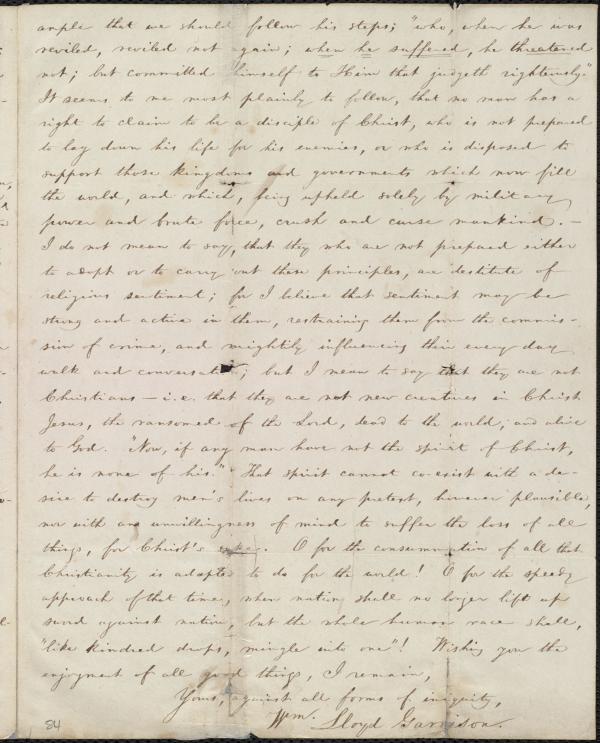 ample that we should follow his steps; "who, when he was
reviled, reviled not again; when he suffered, he threatened
not; but committed himself to Him that judgeth righteously."
It seems to me most plainly to follow, that no man has a
right to claim to be a disciple of Christ, who is not prepared
to lay down his life for his enemies, or who is disposed to
support those kingdoms and governments which now fill
the world, and which, being upheld solely by military
power and brute force, crush and curse mankind. —
I do not mean to say, that they who are not prepared either
to adopt or to carry out these principles, are destitute of
religious sentiment; for I believe that sentiment may be
strong and active in them, restraining them from the commis-
sion of crime, and mightily influencing their every day
walk and conversation; but I mean to say that they are not
Christians — i.e. that they are not new creatures in Christ
Jesus, the ransomed of the Lord, dead to the world, and alive
to God. "Now, if any man have not the spirit of Christ,
he is none of his." That spirit cannot co-exist with a de-
sire to destroy men's lives on any pretext, however plausible,
nor with an unwillingness of mind to suffer the loss of all
things, for Christ's sake. O for the consummation of all that
Christianity is adapted to do for the world! O for the speedy
approach of that time, when nation shall no longer lift up
sword against nation, but the whole human race shall,
"like kindred drops, mingle into one"! Wishing you the
enjoyment of all good things, I remain,
Yours, against all forms of iniquity,
Wm. Lloyd Garrison.
84